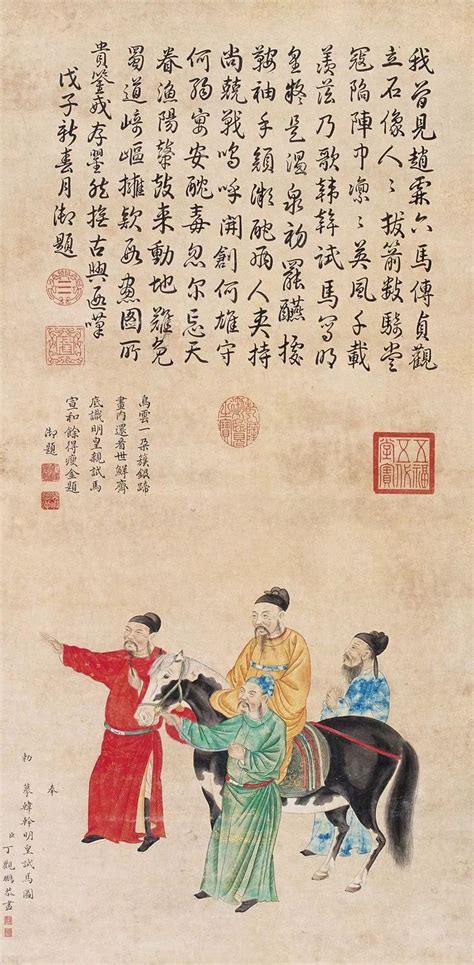 我曾見趙霖六馬傳貞觀
立石像人人拔箭數騎堂
寇陷陣中凜凜英風千載
羨茲乃歌韓幹試馬寫明
皇擬是溫泉初罷醼據
鞍袖手顏微酡兩人夾持
尚兢戰嗚呼開創何雄守
何弱宴安酖毒忽尔忘天
眷漁陽鼙鼓來動地難免
蜀道崎嶇擁欵段畫圖所
貴鑒戒存然撫古興嘆
戊子新春月御題
三
烏雲一朵簇銀蹄
畫內還看世鮮齊
底識明皇親試馬
宣和餘得瘦金題
御題
乾隆御覽之寶
五福
五代
堂寶
奉
勅 摹韓幹明皇試馬圖
臣丁觀鵬恭畫